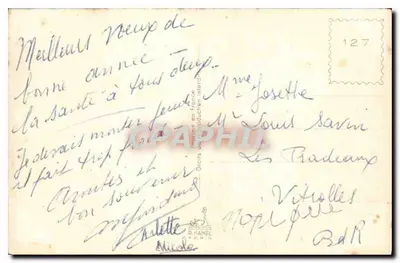 Meilleurs Voeux de
bonne année -
La santé à tous deux.
Je devais monter jeudi
il fait trop froid
Amitiés et
bon souvenir
Arlette
Nicole
127
Mme Josette
Mr Louis Savin
Les Pradeaux
Vitrolles
BdR